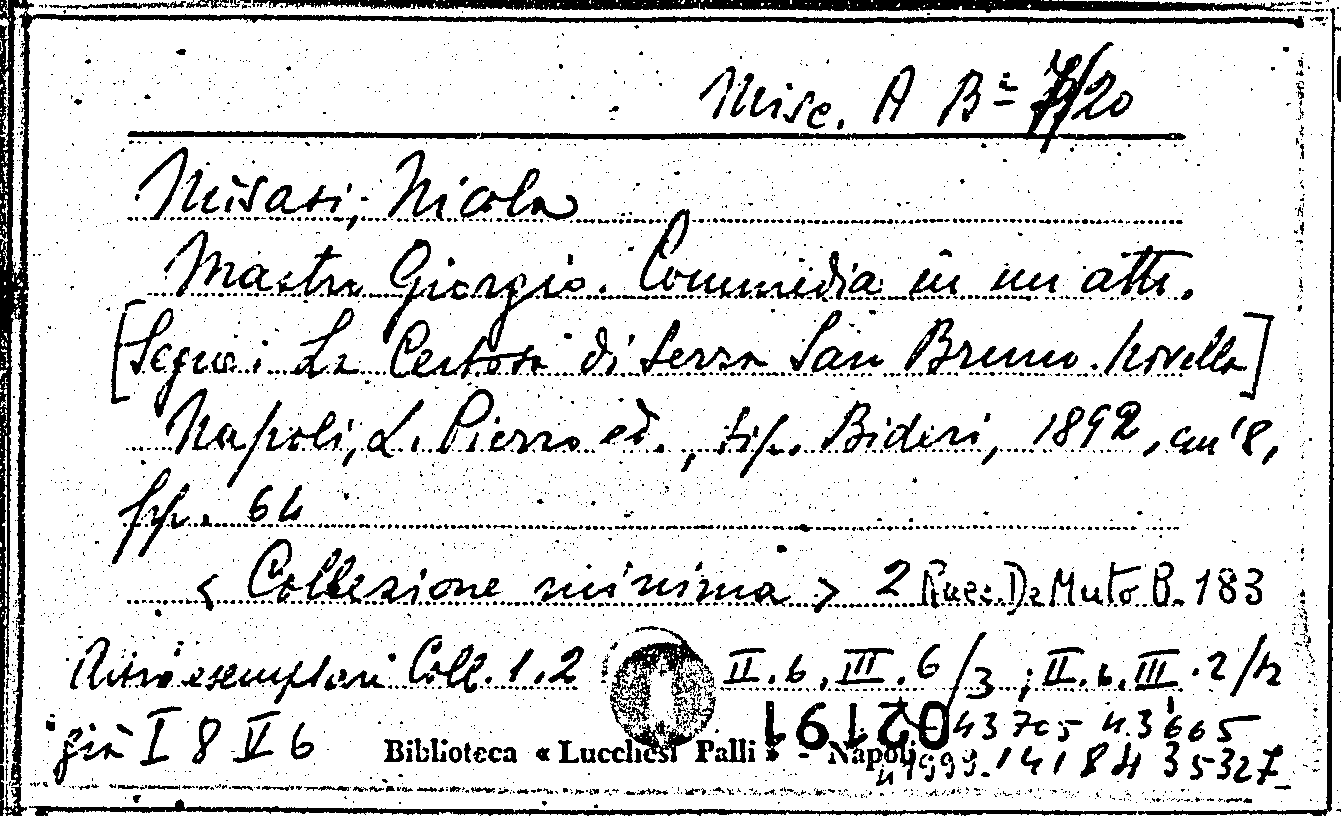 Misc. A Bª 7/20
Misasi, Nicola
Mastro Giorgio. Commedia in un atto.
[Segue: La Certosa di Serra San Bruno. Novella]
Napoli, L. Pierro ed., tip. Bideri, 1892, in 8,
pp. 64
< Collezione minima > 2 Racc. De Muto B. 183
Altri esemplari Coll. 1.2 II.6.III.6/3; II.6.III.2/12
già I 8 V 6 43705 43665
021910
Biblioteca « Lucchesi Palli » - Napoli